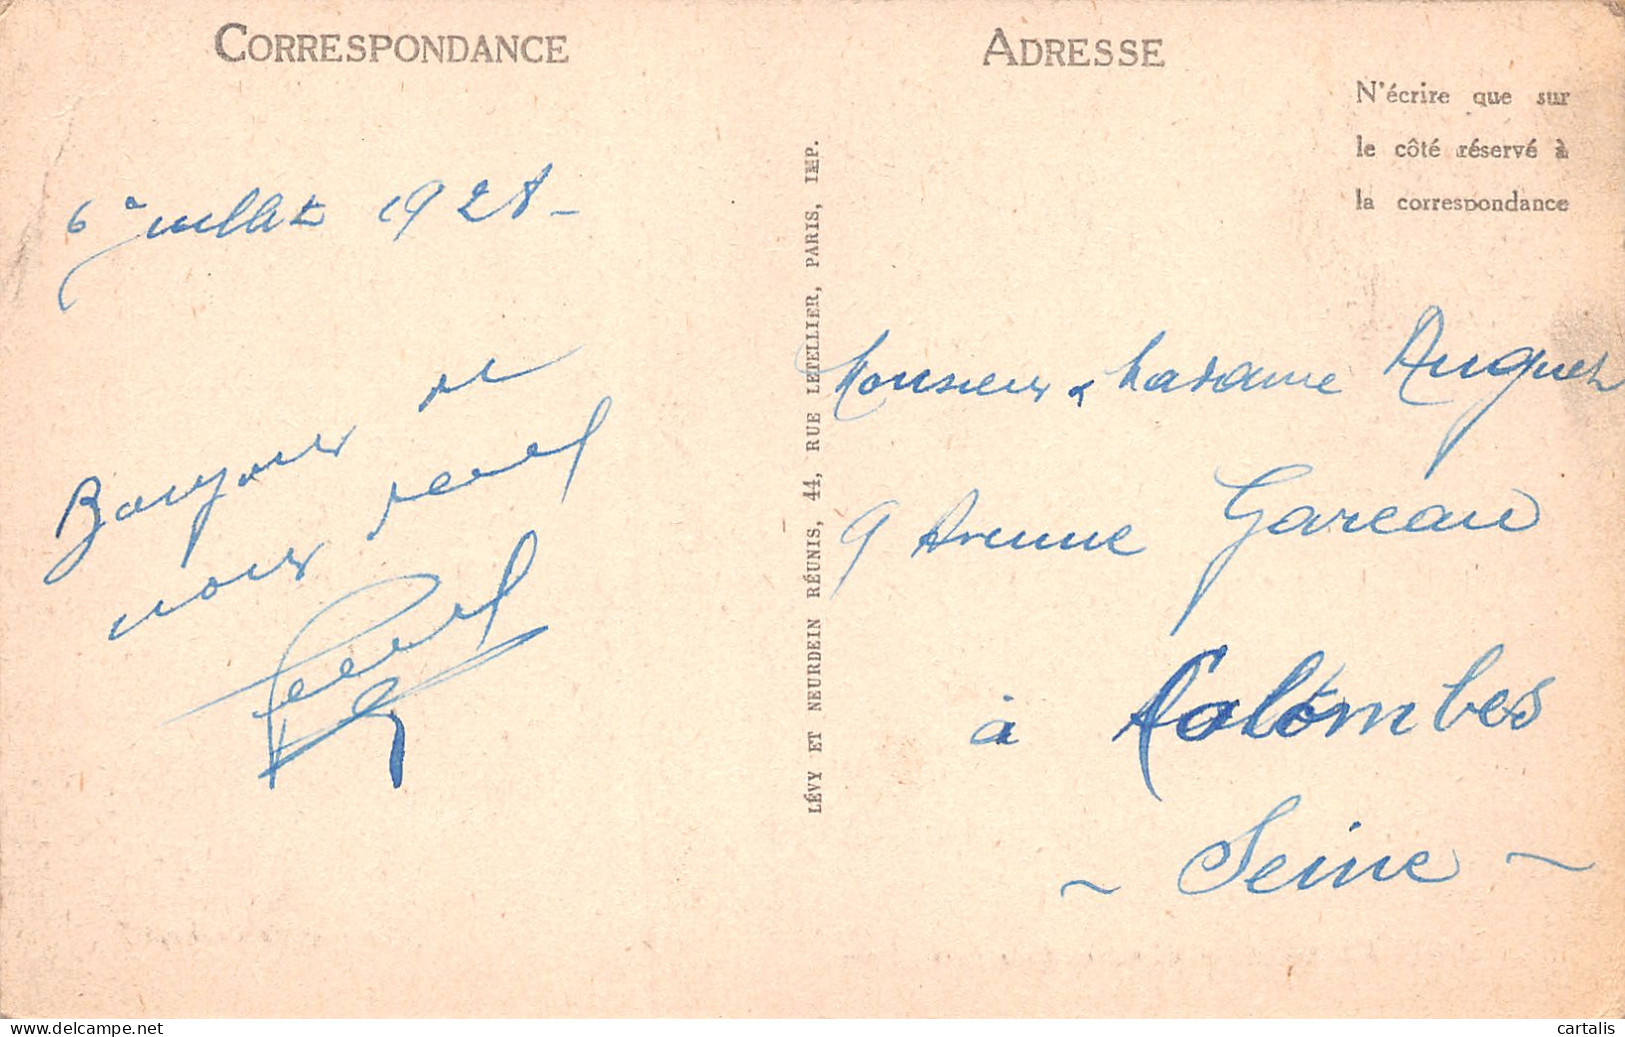 CORRESPONDANCE
6 juillet 1928 -
Bonjour
nous
ADRESSE
N'écrire que sur
le côté réservé à
la correspondance
LÉVY ET NEURDEIN RÉUNIS, 44, RUE LETELLIER, PARIS, IMP.
Monsieur & Madame Auguet
9 Avenue Gareau
à Colombes
~ Seine ~
www.cartalis-shop.com
cartalis